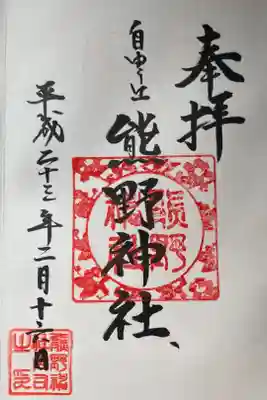 奉拝
自由が丘
熊野神社
平成二十三年二月十六日
熊野神社
熊野神社之印